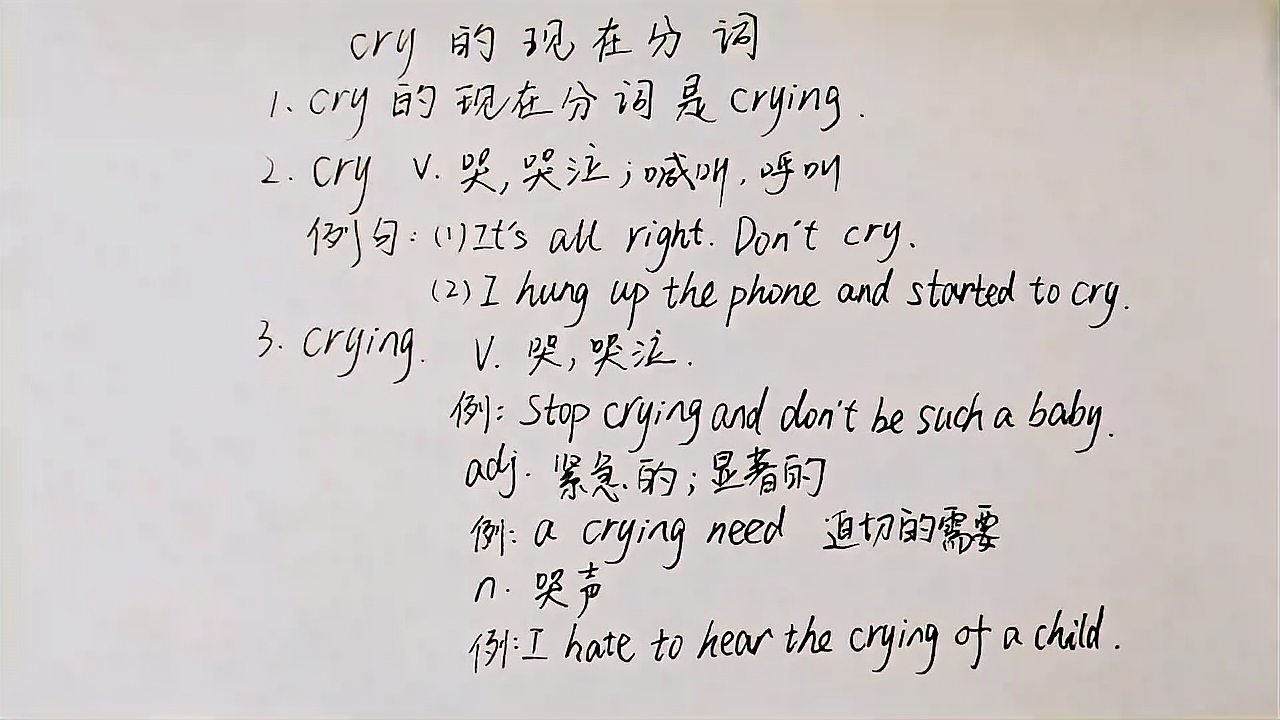 cry的现在分词
1. cry的现在分词是crying.
2. cry v. 哭,哭泣;喊叫,呼叫
例句:(1)It's all right. Don't cry.
(2)I hung up the phone and started to cry.
3. crying. v. 哭,哭泣.
例: Stop crying and don't be such a baby.
adj. 紧急的;显著的
例: a crying need 迫切的需要
n. 哭声
例:I hate to hear the crying of a child.